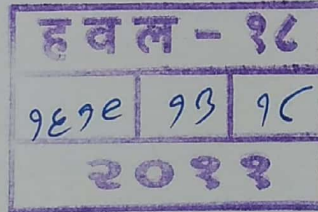 हवल - १८
१६१९ १३ १८
२०११